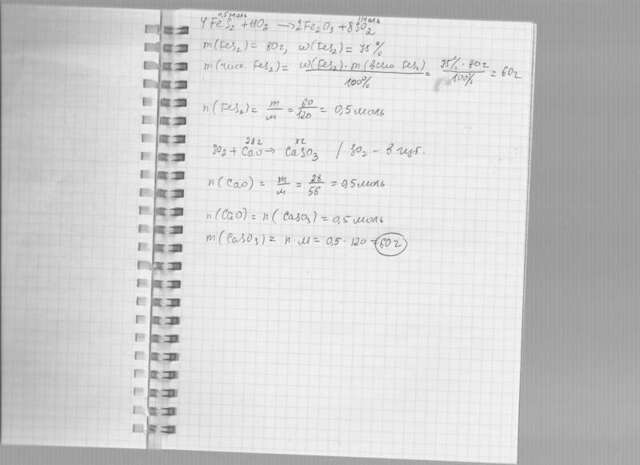 0,5 моль 1 моль
4FeS2 + 11O2 → 2Fe2O3 + 8SO2
m(FeS2) = 80г, w(FeS2) = 75%
m(чист. FeS2) = w(FeS2) · m(всего FeS2) / 100% = 75% · 80г / 100% = 60г
n(FeS2) = m/M = 60/120 = 0,5 моль
28г xг
SO2 + CaO → CaSO3 / SO2 - в изб.
n(CaO) = m/M = 28/56 = 0,5 моль
n(CaO) = n(CaSO3) = 0,5 моль
m(CaSO3) = n · M = 0,5 · 120 = 60г